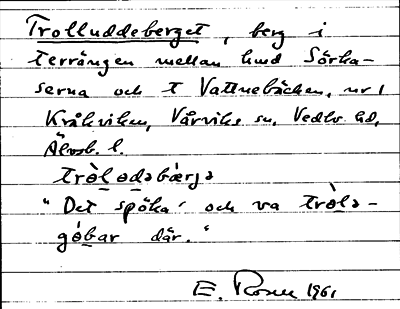 Trolluddeberget, berg i
terrängen mellan hmd Sörka-
serna och t Vattnebäcken, nr 1
Kråkviken, Vårviks sn, Vedbo hd,
Älvsb. l.
tròlodəbærjə
"Det spöka' och va tròlə-
gòbar där."
E. Rosen 1961